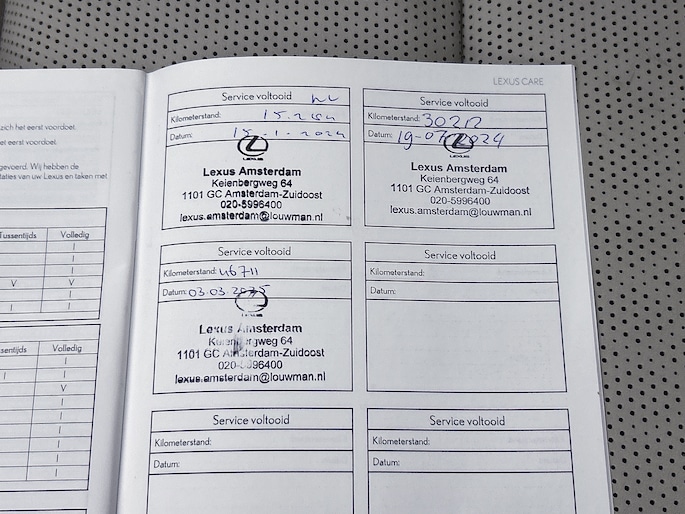 LEXUS CARE
zich het eerst voordoet.
et eerst voordoet.
gevoerd. Wij hebben de
taties van uw Lexus en taken met
Tussentijds Volledig
I
I
I
V V
I
I I
sentijds Volledig
I
I I
V
I
I
I
I
I
I
Service voltooid
Kilometerstand:
Datum: 15-1-2024
LEXUS
Lexus Amsterdam
Keienbergweg 64
1101 GC Amsterdam-Zuidoost
020-5996400
lexus.amsterdam@louwman.nl
Service voltooid
Kilometerstand: 30212
Datum: 19-07-2024
LEXUS
Lexus Amsterdam
Keienbergweg 64
1101 GC Amsterdam-Zuidoost
020-5996400
lexus.amsterdam@louwman.nl
Service voltooid
Kilometerstand: 46711
Datum: 03.03.2025
LEXUS
Lexus Amsterdam
Keienbergweg 64
1101 GC Amsterdam-Zuidoost
020-5996400
lexus.amsterdam@louwman.nl
Service voltooid
Kilometerstand:
Datum:
Service voltooid
Kilometerstand:
Datum:
Service voltooid
Kilometerstand:
Datum: